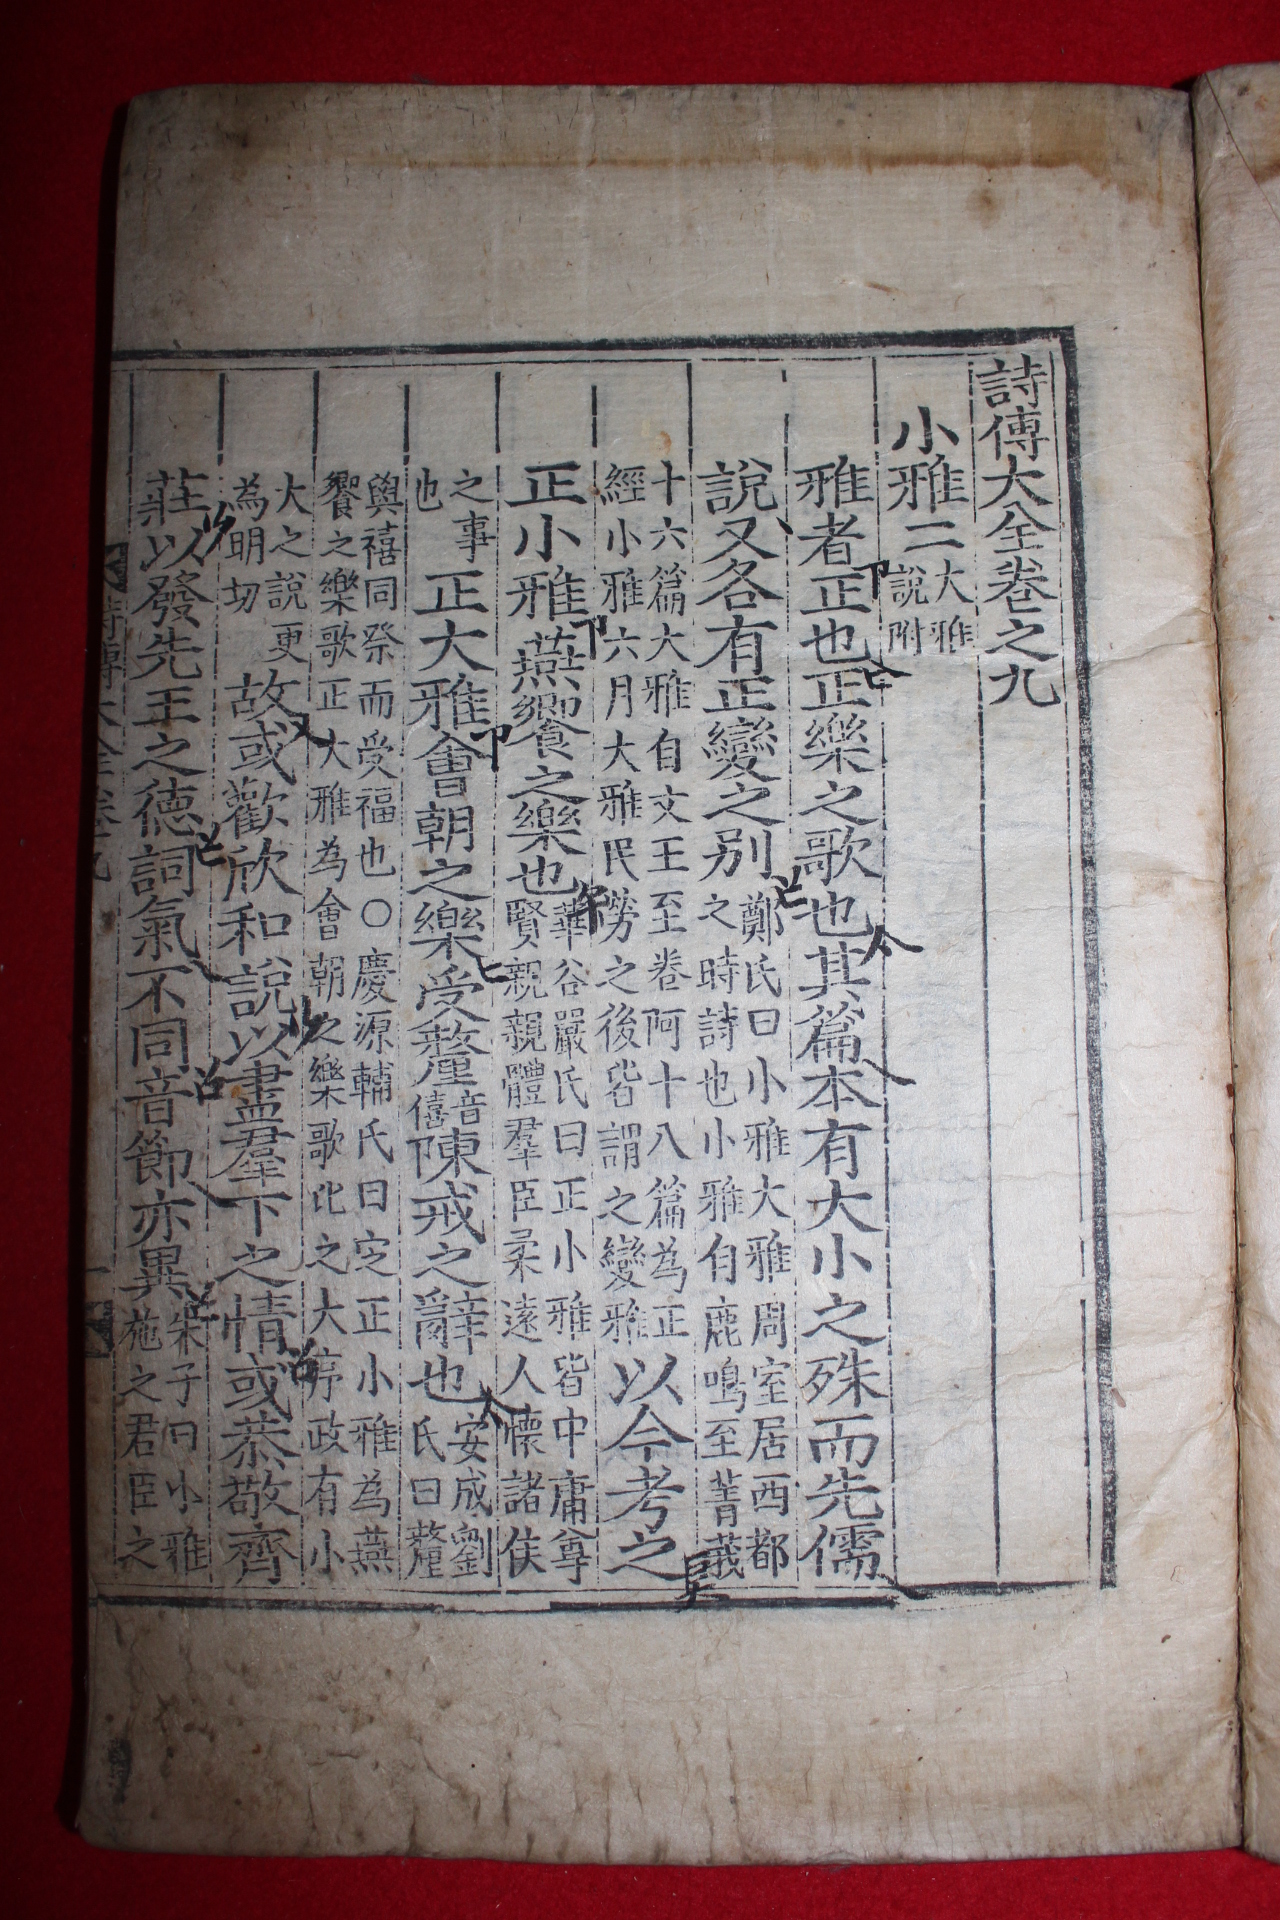 詩傳大全卷之九
小雅二大雅說附
雅者正也正樂之歌也其篇本有大小之殊而先儒
說又各有正變之別鄭氏曰小雅大雅周室居西都之時詩也小雅自鹿鳴至菁莪
十六篇大雅自文王至卷阿十八篇為正經小雅六月大雅民勞之後皆謂之變雅以今考之
正小雅燕饗之樂也華谷嚴氏曰正小雅皆中庸尊賢親親體羣臣柔遠人懷諸侯
之事也正大雅會朝之樂受釐音僖陳戒之辭也安成劉氏曰釐
與禧同祭而受福也○慶源輔氏曰定正小雅為燕饗之樂歌正大雅為會朝之樂歌比之大序政有小
大之說更為明切故或歡欣和說以盡羣下之情或恭敬齊
莊以發先王之德詞氣不同音節亦異朱子曰小雅施之君臣之
詩傳大全卷九 一